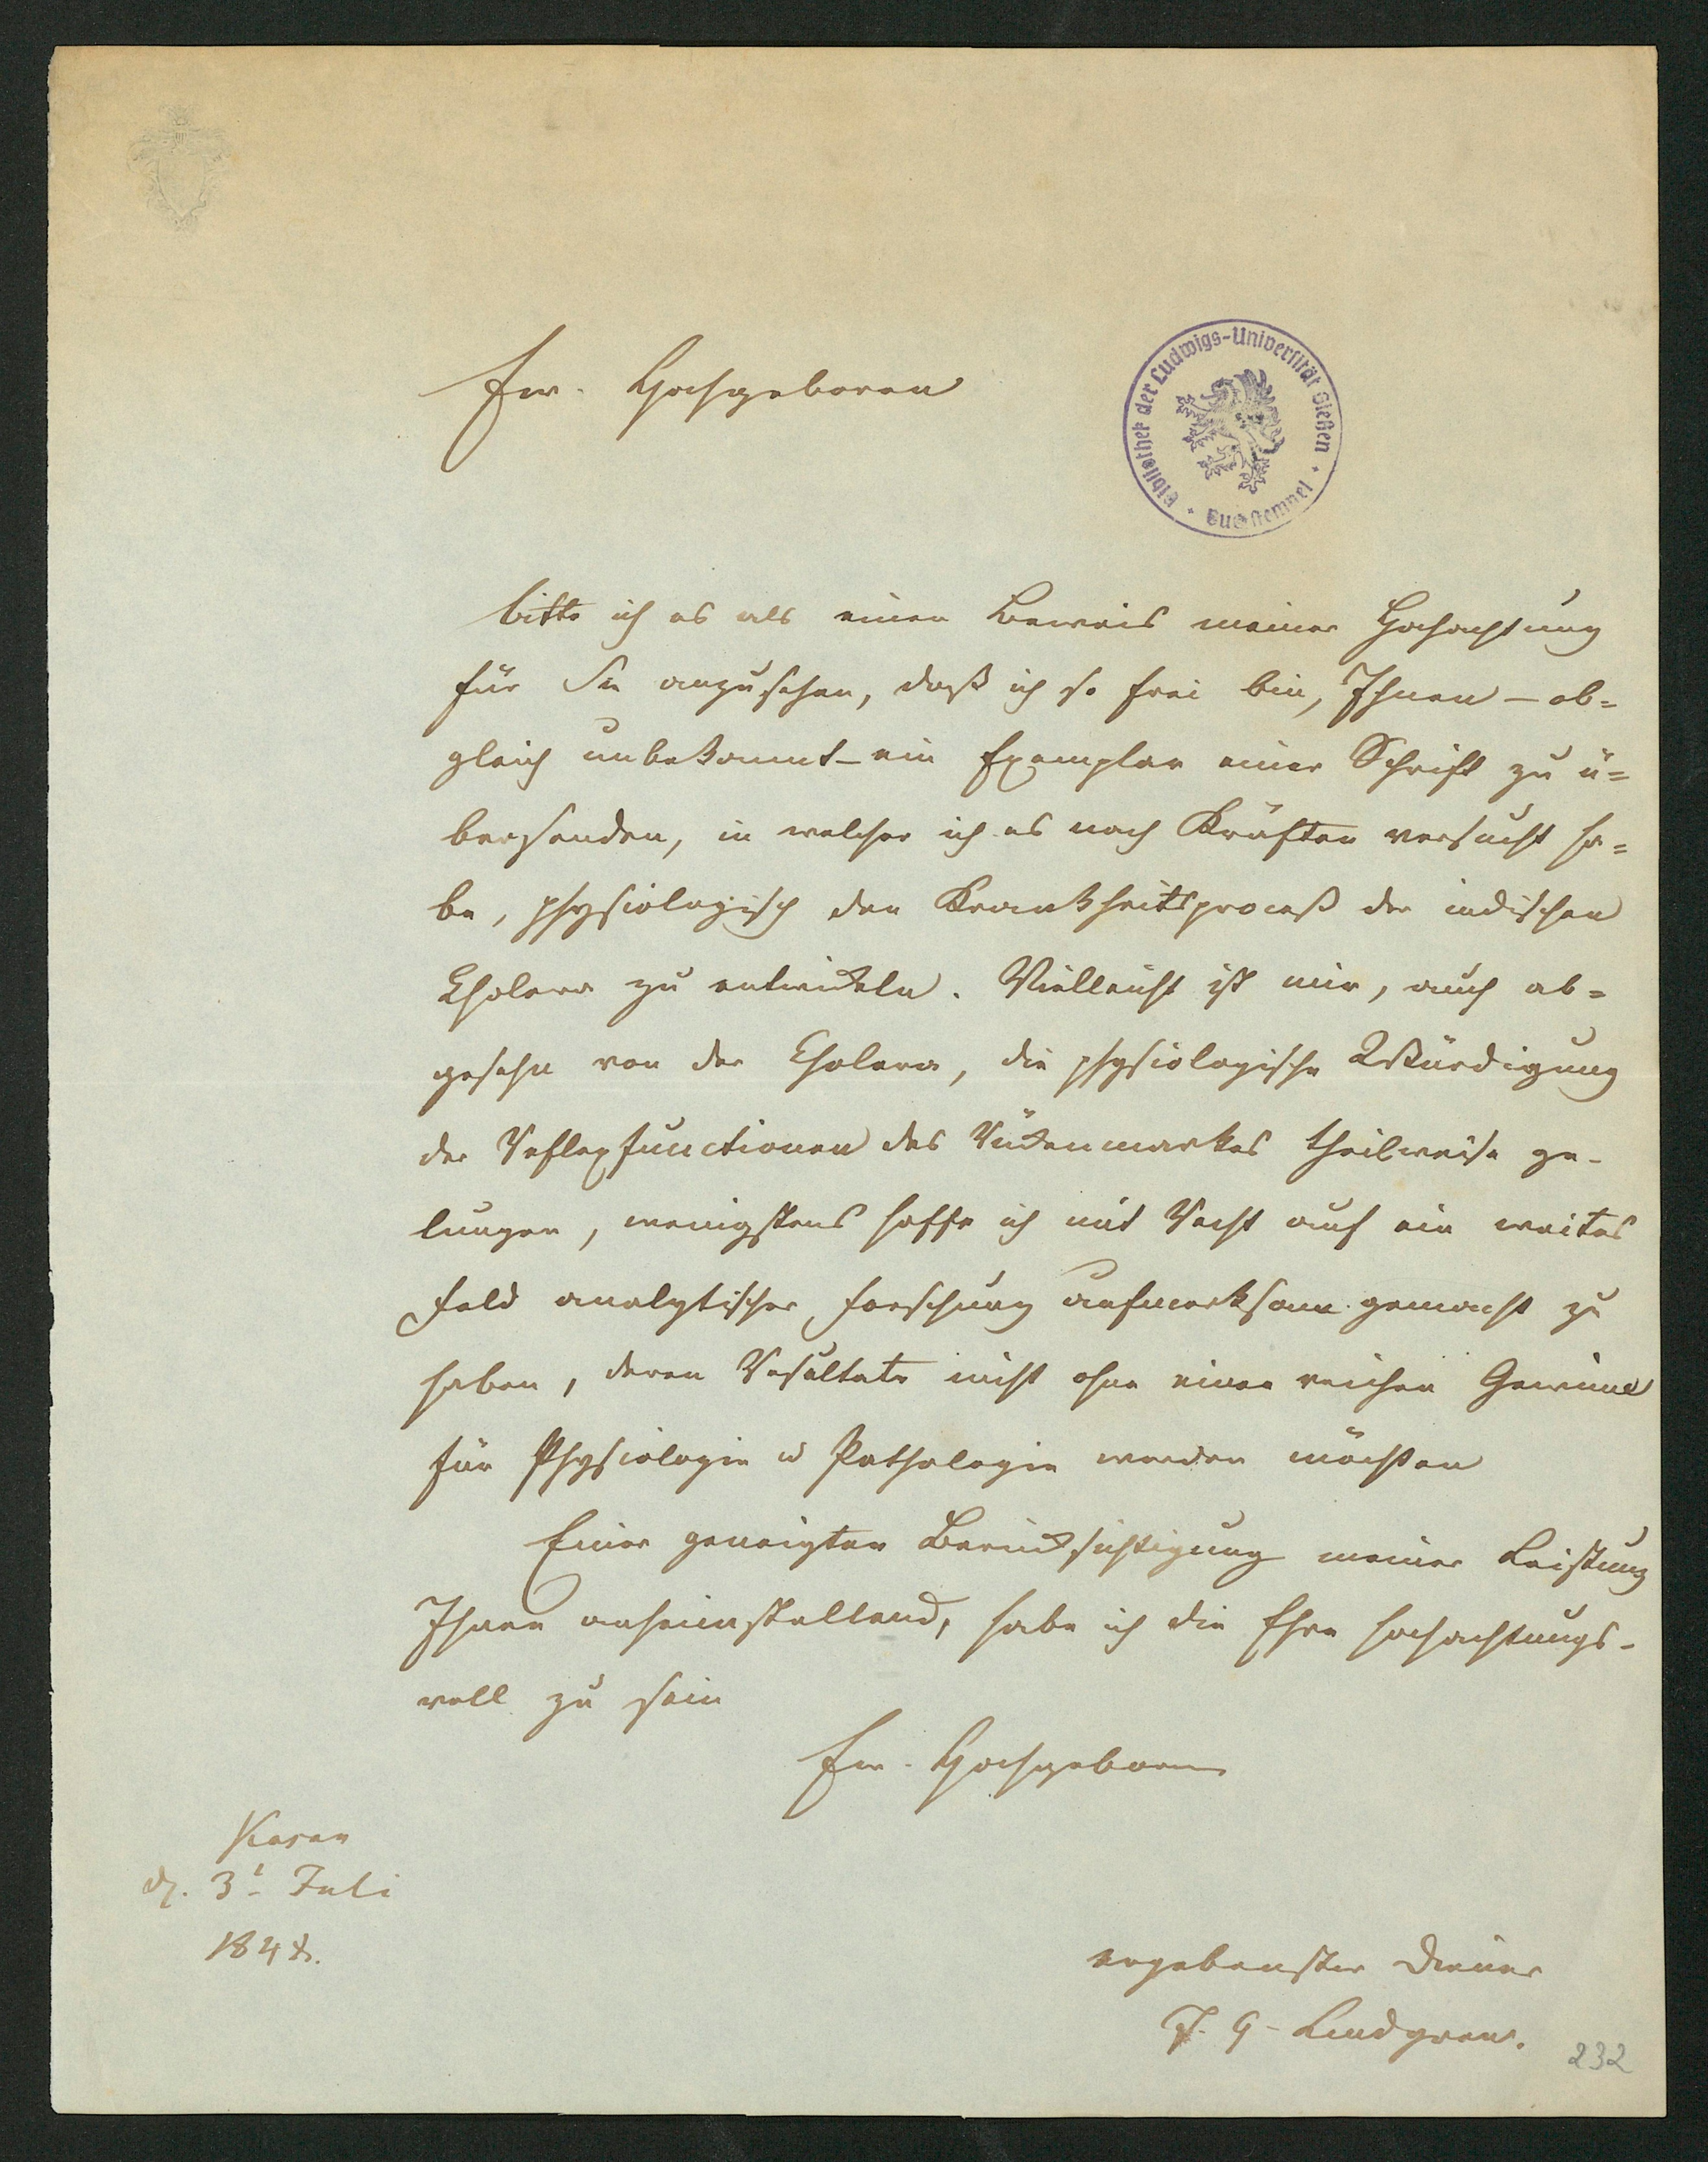 Ew. Hochgeboren
Bibliothek der Ludwigs-Universität Gießen · Buchstempel ·
bitte ich es als einen Beweis meiner Hochachtung
für Sie anzusehen, daß ich so frei bin, Ihnen – ob=
gleich unbekannt – ein Exemplar einer Schrift zu ü=
bersenden, in welcher ich es nach Kräften versucht ha=
be, physiologisch den Krankheitsproceß der indischen
Cholera zu entwickeln. Vielleicht ist mir, auch ab=
gesehn von der Cholera, die physiologische Würdigung
der Reflexfunctionen des Rückenmarkes theilweise ge-
lungen, wenigstens hoffe ich mit Recht auf ein weites
Feld analytischer Forschung aufmerksam gemacht zu
haben, deren Resultate nicht ohne einen reichen Gewinn
für Physiologie u Pathologie werden möchten
Einer geneigten Berücksichtigung meiner Leistung
Ihnen anheimstellend, habe ich die Ehre hochachtungs-
voll zu sein
Ew. Hochgeboren
Kasan
d. 3t Juli
1848.
ergebenster Diener
J. G. Lindgren.
232